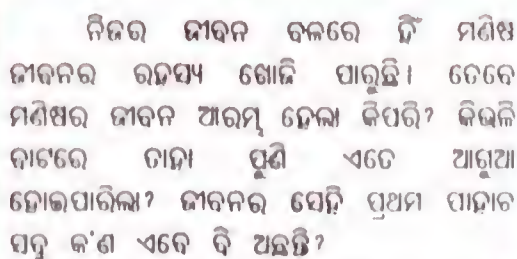 ନିଜର ଜୀବନ ବଳରେ ହିଁ ମଣିଷ
ଜୀବନର ରହସ୍ୟ ଖୋଜି ପାରୁଛି। ତେବେ
ମଣିଷର ଜୀବନ ଆରମ୍ଭ ହେଲା କିପରି? କିଭଳି
ବାଟରେ ତାହା ପୁଣି ଏତେ ଆଗୁଆ
ହୋଇପାରିଲା? ଜୀବନର ସେହି ପ୍ରଥମ ପାହାଚ
ସବୁ କ'ଣ ଏବେ ବି ଅଛନ୍ତି?